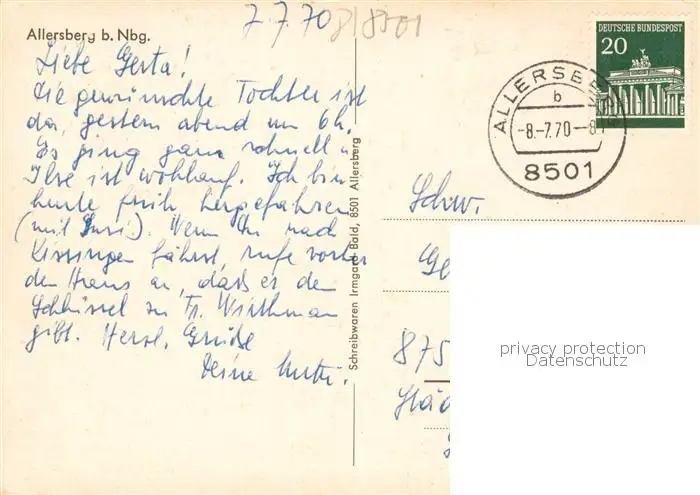 7.7.70
8/8501
Allersberg b. Nbg.
Liebe Gerta!
die gewünschte Tochter ist
da, gestern abend um 6h.
Es ging ganz schnell u.
Ilse ist wohlauf. Ich bin
heute früh hergefahren
(mit Susi). Wenn Du nach
Kissingen fährst, rufe vorher
den Hans an, daß er den
Schlüssel zu Fr. Wirthman
gibt. Herzl. Grüße
Deine Mutti.
Schreibwaren Irmgard Bald, 8501 Allersberg
DEUTSCHE BUNDESPOST
20
ALLERSBERG
b
-8.-7.70-8
8501
Schw.
875
privacy protection
Datenschutz